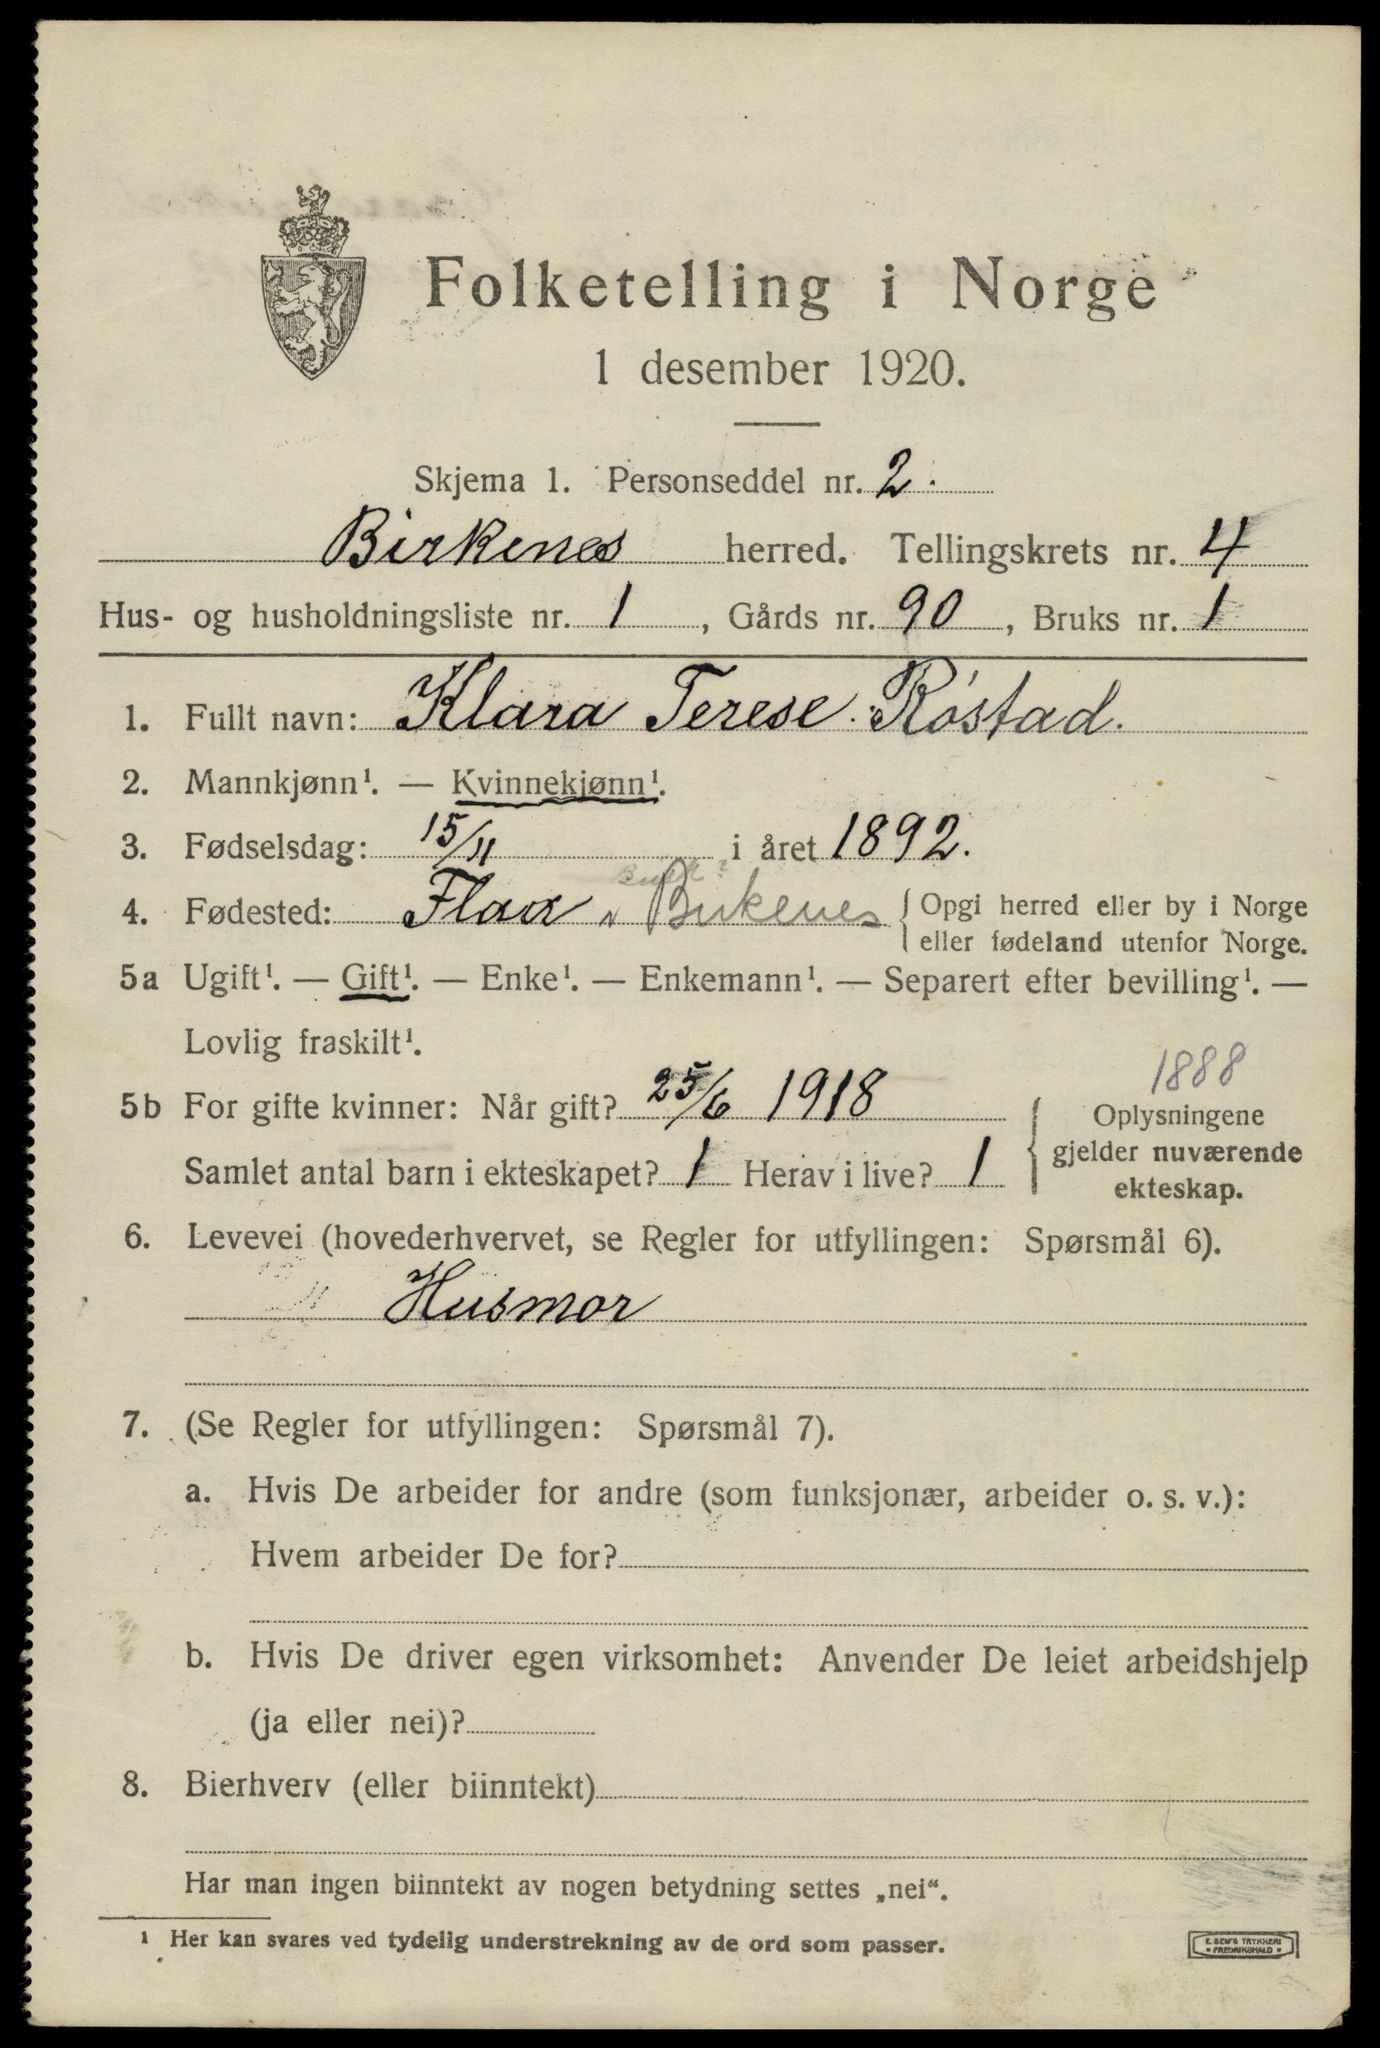 Folketelling i Norge
1 desember 1920.
Skjema 1. Personseddel nr. 2.
Birkenes herred. Tellingskrets nr. 4
Hus- og husholdningsliste nr. 1, Gårds nr. 90, Bruks nr. 1
1. Fullt navn: Klara Terese Róstad.
2. Mannkjønn¹. — Kvinnekjønn¹.
3. Fødselsdag: 15/11 i året 1892.
4. Fødested: Flaa Birkenes { Opgi herred eller by i Norge
eller fødeland utenfor Norge.
5a Ugift¹. — Gift¹. — Enke¹. — Enkemann¹. — Separert efter bevilling¹. —
Lovlig fraskilt¹.
1888
5b For gifte kvinner: Når gift? 25/6 1918 { Oplysningene
gjelder nuværende
Samlet antal barn i ekteskapet? 1 Herav i live? 1
ekteskap.
6. Levevei (hovederhvervet, se Regler for utfyllingen: Spørsmål 6).
Husmor
7. (Se Regler for utfyllingen: Spørsmål 7).
a. Hvis De arbeider for andre (som funksjonær, arbeider o. s. v.):
Hvem arbeider De for?
b. Hvis De driver egen virksomhet: Anvender De leiet arbeidshjelp
(ja eller nei)?
8. Bierhverv (eller biinntekt)
Har man ingen biinntekt av nogen betydning settes „nei“.
¹ Her kan svares ved tydelig understrekning av de ord som passer.
E. SEM'S TRYKKERI
• FREDRIKSHALD •